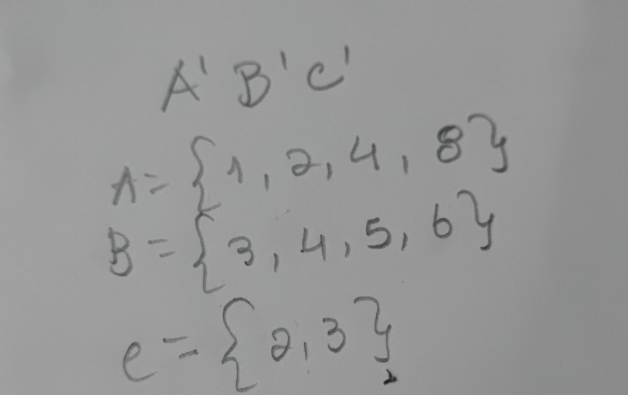 A' B' C'
A = {1, 2, 4, 8}
B = {3, 4, 5, 6}
C = {2, 3}